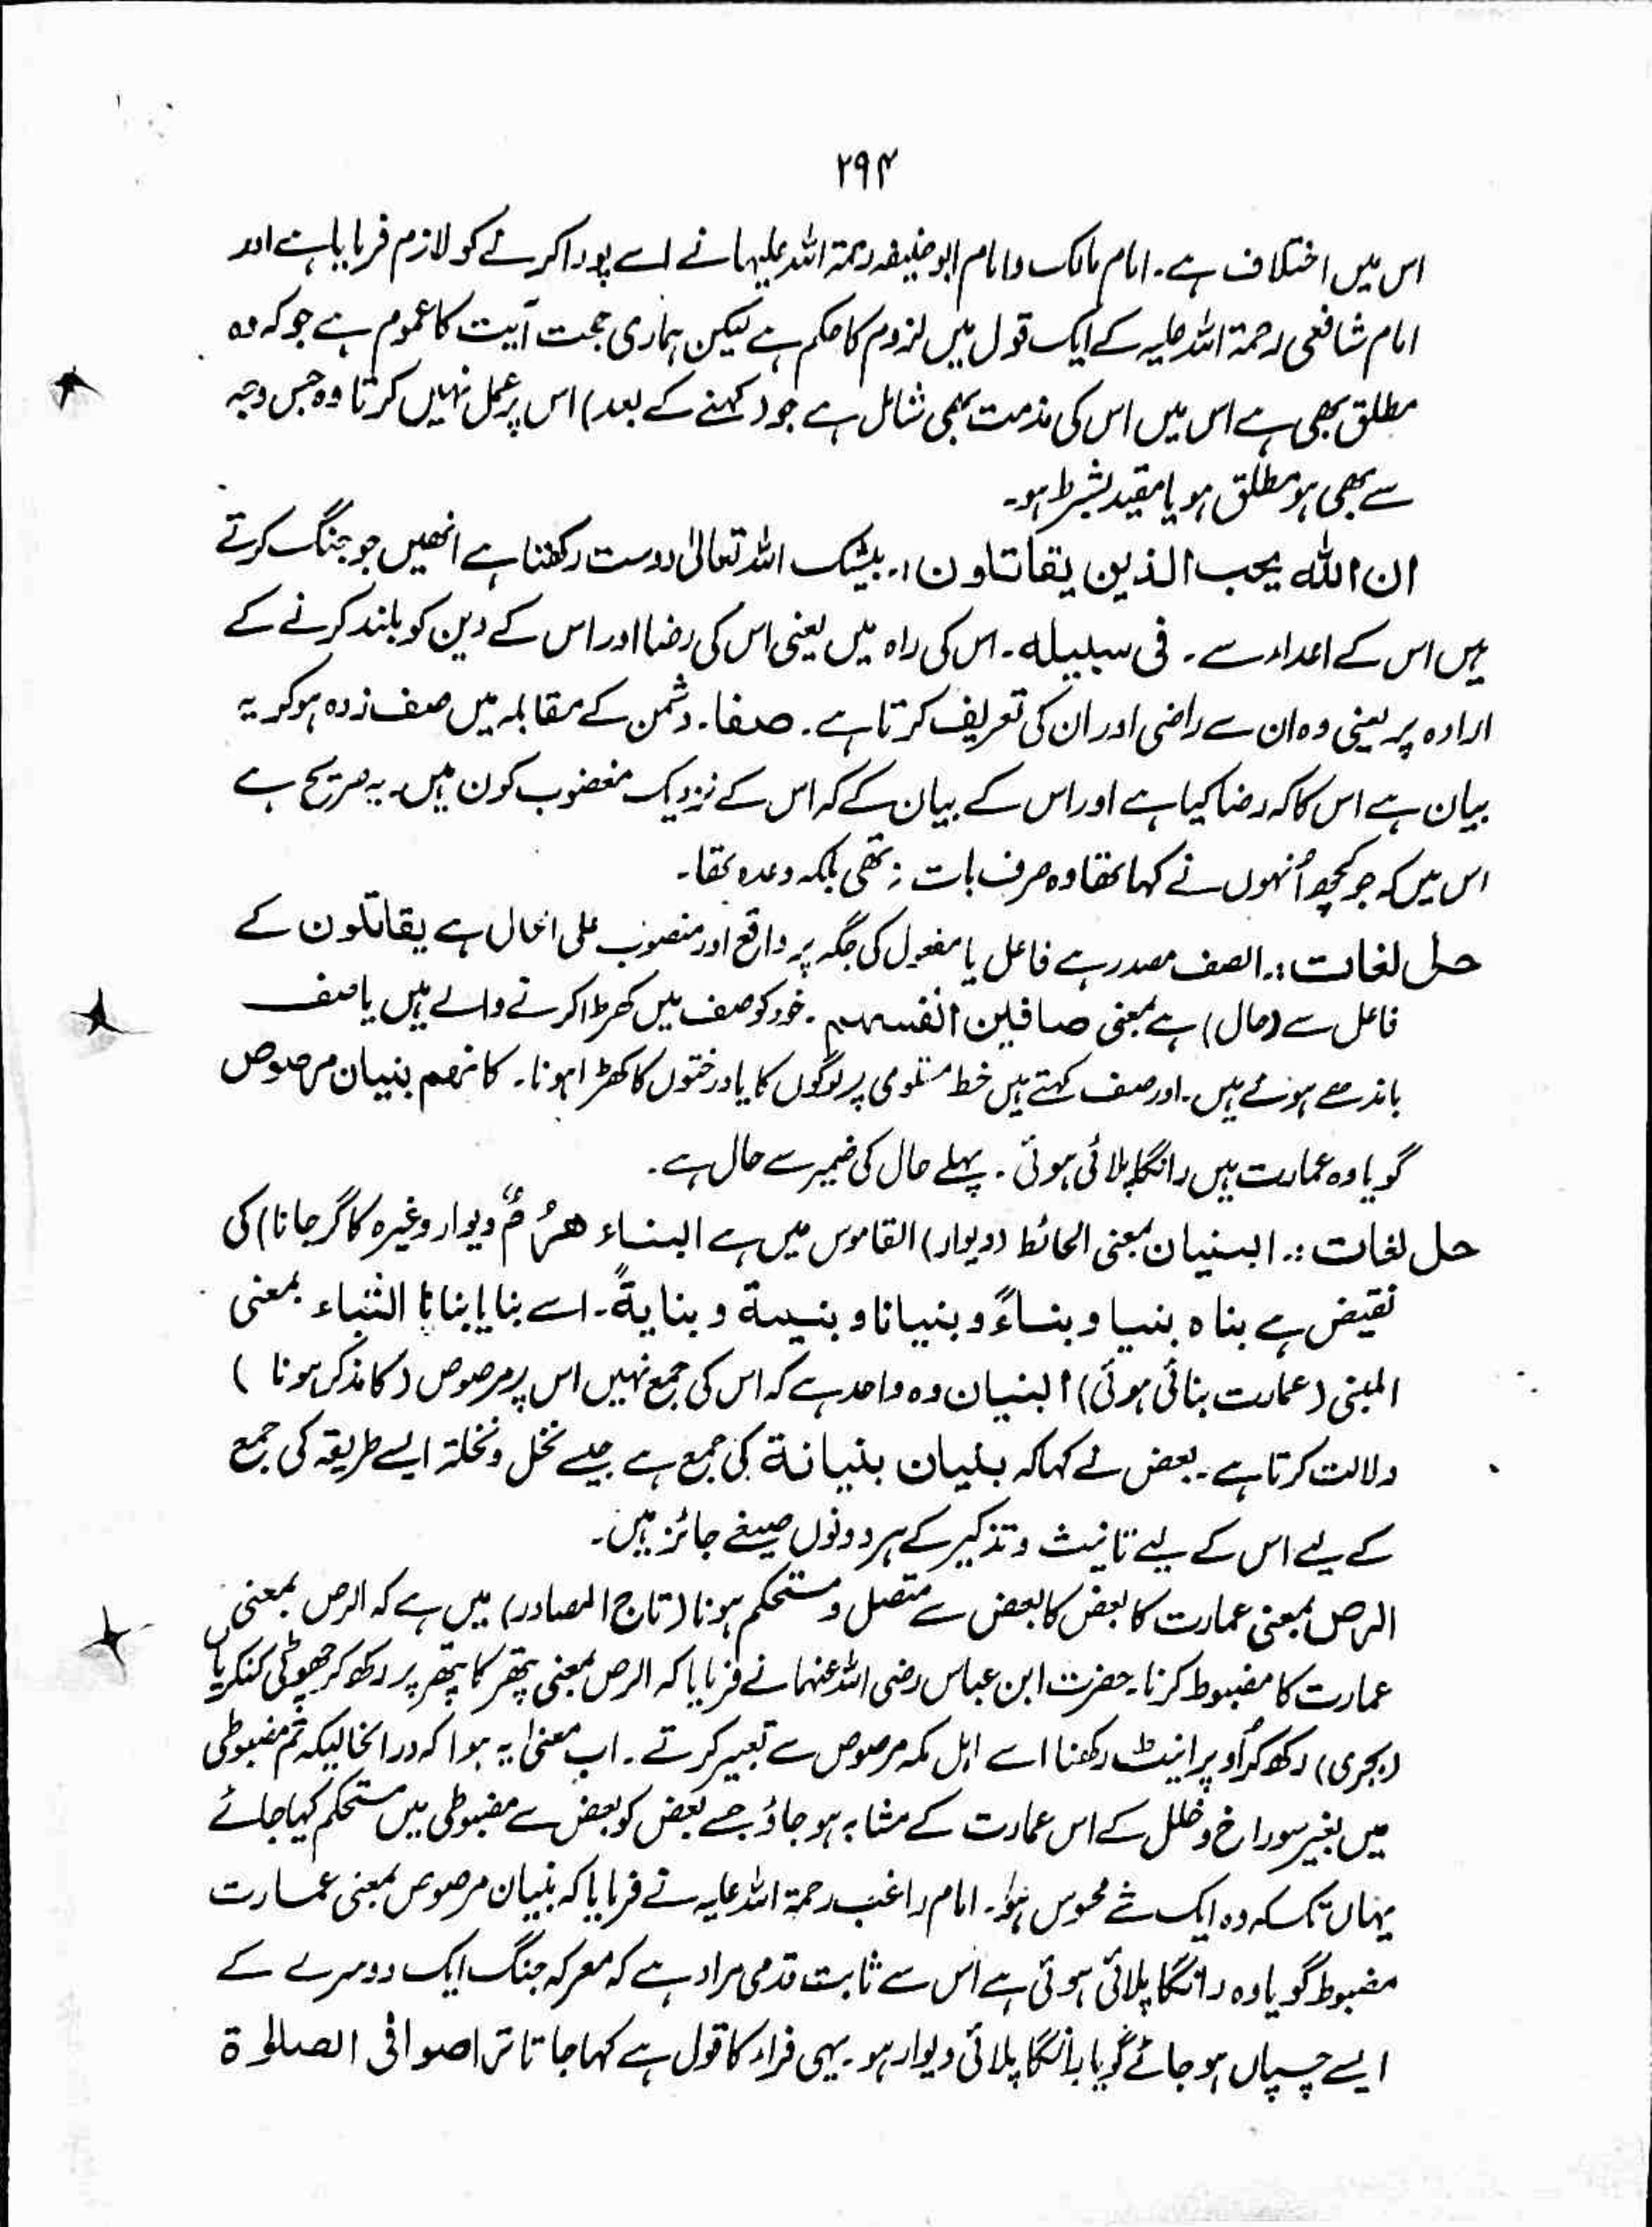 ۲۹۴
اس میں اختلاف ہے۔ امام مالک و امام ابوحنیفہ رحمۃ اللہ علیہما نے اسے پورا کرنے کو لازم فرمایا ہے اور
امام شافعی رحمۃ اللہ علیہ کے ایک قول میں لزوم کا حکم ہے لیکن ہماری حجت آیت کا عموم ہے جو کہ وہ
مطلق بھی ہے اس میں اس کی مذمت بھی شامل ہے جو (کہنے کے بعد) اس پر عمل نہیں کرتا وہ جس وجہ
سے بھی ہو مطلق ہو یا مقید بشرط ہو۔
ان اللہ یحب الذین یقاتلون :۔ بیشک اللہ تعالیٰ دوست رکھتا ہے انھیں جو جنگ کرتے
ہیں اس کے اعداء سے۔ فی سبیلہ۔ اس کی راہ میں یعنی اس کی رضا اور اس کے دین کو بلند کرنے کے
ارادہ پر یعنی وہ ان سے راضی اور ان کی تعریف کرتا ہے۔ صفا۔ دشمن کے مقابلہ میں صف زدہ ہو کر یہ
بیان ہے اس کا کہ رضا کیا ہے اور اس کے بیان کے کہ اس کے نزدیک مغضوب کون ہیں۔ یہ صریح ہے
اس میں کہ جو کچھ اُنہوں نے کہا تھا وہ صرف بات نہ تھی بلکہ وعدہ تھا۔
حل لغات :۔ الصف مصدر ہے فاعل یا مفعول کی جگہ پر واقع اور منصوب علی الحال ہے یقاتلون کے
فاعل سے (حال) ہے بمعنی صافین انفسہم۔ خود کو صف میں کھڑا کرنے والے ہیں یا صف
باندھے ہوئے ہیں۔ اور صف کہتے ہیں خط مستوی پر لوگوں کا یا درختوں کا کھڑا ہونا۔ کانھم بنیان مرصوص
گویا وہ عمارت ہیں رانگا پلائی ہوئی۔ پہلے حال کی ضمیر سے حال ہے۔
حل لغات :۔ البنیان بمعنی الحائط (دیوار) القاموس میں ہے البناء ھدمٌ (دیوار وغیرہ کا گر جانا) کی
نقیض ہے بناہ بنیا و بناءً و بنیانا و بنیۃ و بنایۃً۔ اسے بنایا بنانا البناء بمعنی
المبنی (عمارت بنائی ہوئی) البنیان وہ واحد ہے کہ اس کی جمع نہیں اس پر مرصوص (کا مذکر ہونا )
دلالت کرتا ہے۔ بعض نے کہا کہ بنیان بنیانۃ کی جمع ہے جیسے نخل و نخلۃ ایسے طریقہ کی جمع
کے لیے اس کے لیے تانیث و تذکیر کے ہر دونوں صیغے جائز ہیں۔
الرص بمعنی عمارت کا بعض کا بعض سے متصل و مستحکم ہونا (تاج المصادر) میں ہے کہ الرص بمعنی
عمارت کا مضبوط کرنا۔ حضرت ابن عباس رضی اللہ عنہما نے فرمایا کہ الرص بمعنی پتھر کا پتھر پر رکھ کر چھوٹی کنکریاں
(بجری) رکھ کر اُوپر اینٹ رکھنا اسے اہل مکہ مرصوص سے تعبیر کرتے۔ اب معنیٰ یہ ہوا کہ درانحالیکہ تم مضبوطی
میں بغیر سوراخ و خلل کے اس عمارت کے مشابہ ہو جاؤ جسے بعض کو بعض سے مضبوطی میں مستحکم کیا جائے
یہاں تک کہ وہ ایک شے محسوس ہو۔ امام راغب رحمۃ اللہ علیہ نے فرمایا کہ بنیان مرصوص بمعنی عمارت
مضبوط گویا وہ رانگا پلائی ہوئی ہے اس سے ثابت قدمی مراد ہے کہ معرکہ جنگ ایک دوسرے کے
ایسے چسپاں ہو جائے گویا رانگا پلائی دیوار ہو۔ یہی فراء کا قول ہے کہا جاتا تراصوا فی الصلوٰۃ